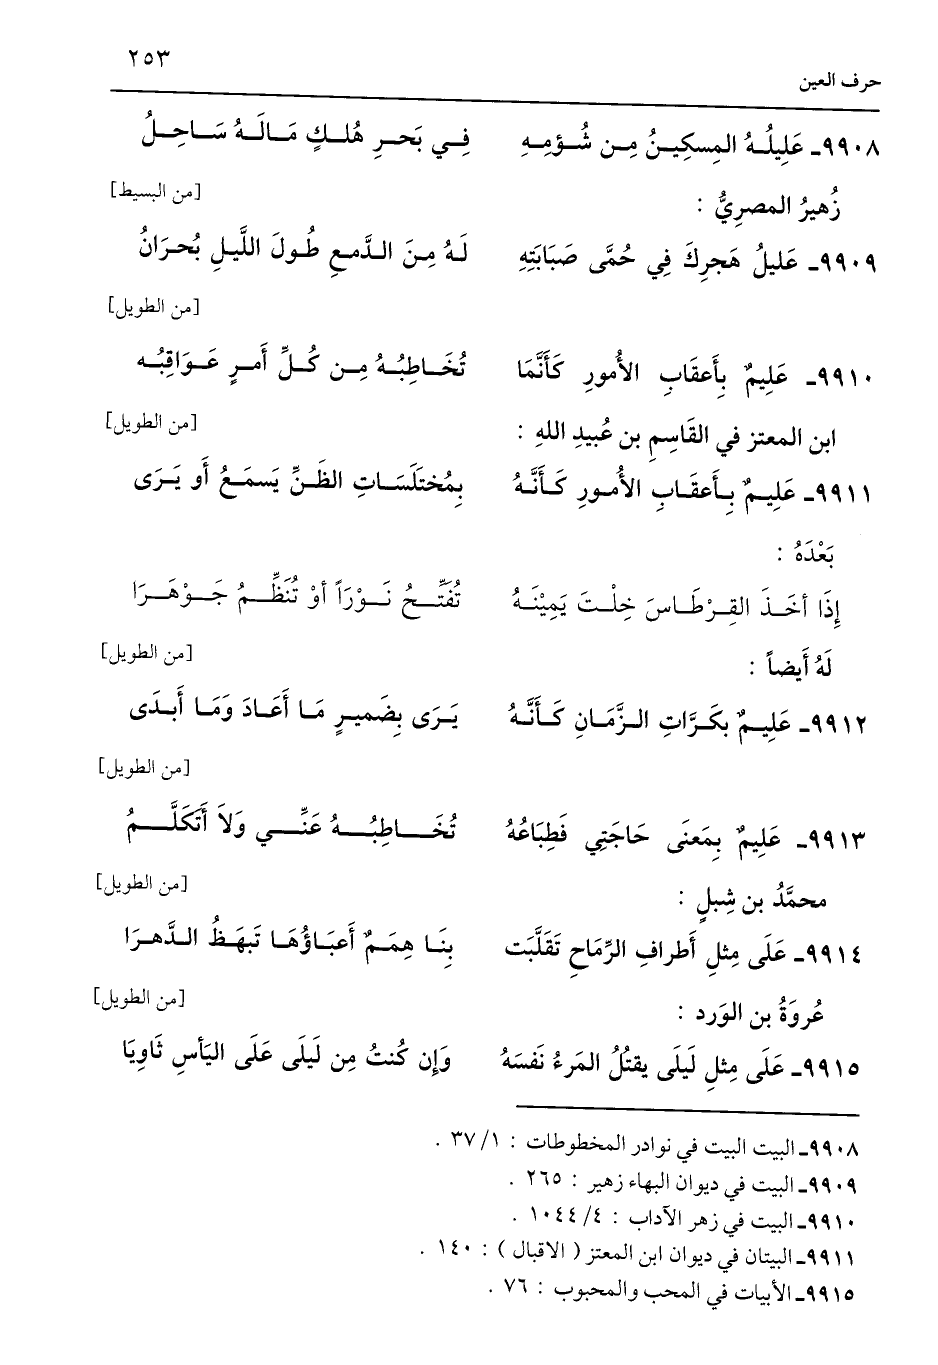 ٢٥٣
حرف العين
٩٩٠٨ـ عَلِيلُهُ المِسكِينُ مِن شُؤمِهِ فِي بَحرِ هُلكٍ مَالَهُ سَاحِلُ
[من البسيط]
زُهيرُ المصرِيُّ :
٩٩٠٩ـ عَليلُ هَجرِكَ فِي حُمَّى صَبَابَتِهِ لَهُ مِنَ الدَّمعِ طُولَ اللَّيلِ بُحرَانُ
[من الطويل]
٩٩١٠ـ عَلِيمٌ بِأَعقَابِ الأُمورِ كَأَنَّمَا تُخَاطِبُهُ مِن كُلِّ أَمرٍ عَوَاقِبُه
[من الطويل]
ابن المعتز في القَاسِمِ بن عُبيدِ اللهِ :
٩٩١١ـ عَلِيمٌ بِأَعقَابِ الأُمورِ كَأَنَّهُ بِمُختَلَسَاتِ الظَنِّ يَسمَعُ أَو يَرَى
بَعْدَهُ :
إِذَا أخَذَ القِرْطَاسَ خِلْتَ يَمِيْنَهُ تُفَتِّحُ نَوْرَاً أوْ تُنَظِّمُ جَوْهَرَا
[من الطويل]
لَهُ أَيضاً :
٩٩١٢ـ عَلِيمٌ بكَرَّاتِ الزَّمَانِ كَأَنَّهُ يَرَى بِضَميرٍ مَا أَعَادَ وَمَا أَبدَى
[من الطويل]
٩٩١٣ـ عَلِيمٌ بِمَعنَى حَاجَتِي فَطِبَاعُهُ تُخَاطِبُهُ عَنِّي وَلاَ أَتَكَلَّمُ
[من الطويل]
محمَّدُ بن شِبلٍ :
٩٩١٤ـ عَلَى مِثلِ أَطرافِ الرِّمَاحِ تَقَلَّبَت بِنَا هِمَمٌ أَعبَاؤُهَا تَبهَظُ الدَّهرَا
[من الطويل]
عُروَةُ بن الوَرد :
٩٩١٥ـ عَلَى مِثلِ لَيلَى يقتُلُ المَرءُ نَفسَهُ وَإِن كُنتُ مِن لَيلَى عَلَى اليَأسِ ثَاوِيَا
٩٩٠٨ـ البيت البيت في نوادر المخطوطات : ١/ ٣٧ .
٩٩٠٩ـ البيت في ديوان البهاء زهير : ٢٦٥ .
٩٩١٠ـ البيت في زهر الآداب : ٤/ ١٠٤٤ .
٩٩١١ـ البيتان في ديوان ابن المعتز ( الاقبال ) : ١٤٠ .
٩٩١٥ـ الأبيات في المحب والمحبوب : ٧٦ .